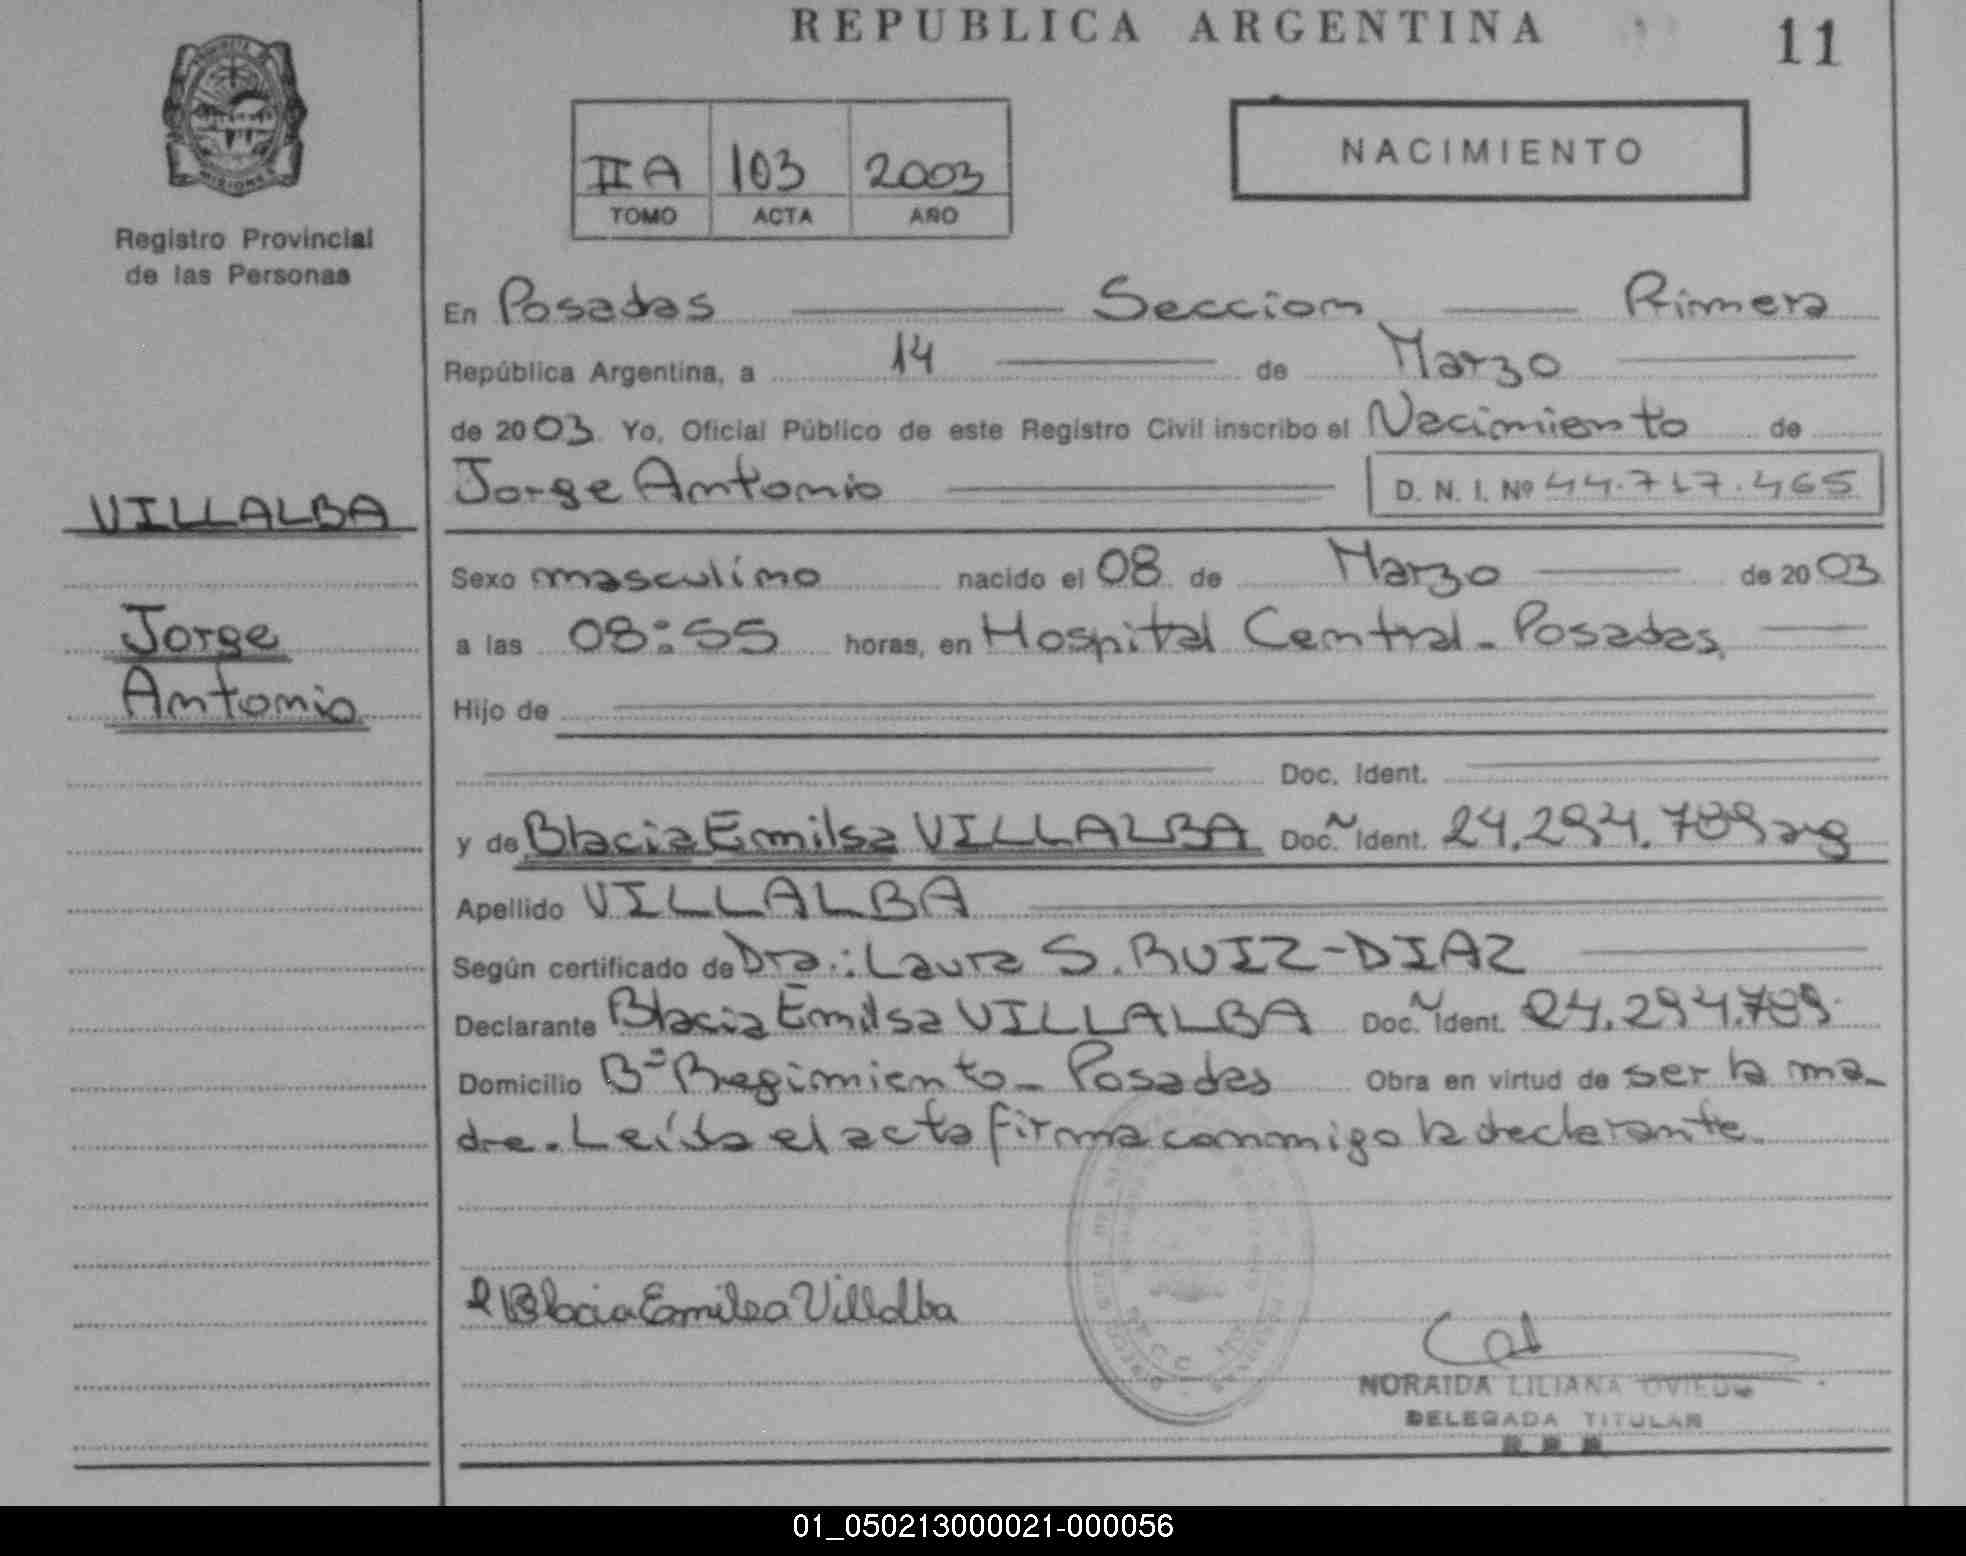 REPUBLICA ARGENTINA
11
MISIONES
Registro Provincial
de las Personas
II A 103 2003
TOMO ACTA AÑO
NACIMIENTO
En Posadas Seccion Primera
República Argentina, a 14 de Marzo
de 2003. Yo, Oficial Público de este Registro Civil inscribo el Nacimiento de
Jorge Antonio D. N. I. Nº 44.717.465
VILLALBA
Sexo masculino nacido el 08 de Marzo de 2003
Jorge
Antonio
a las 08:55 horas, en Hospital Central - Posadas,
Hijo de
Doc. Ident.
y de Blacia Emilsa VILLALBA Doc. Ident. 24.294.789 arg
Apellido VILLALBA
Según certificado de Dra.: Laura S. RUIZ-DIAZ
Declarante Blacia Emilsa VILLALBA Doc. Ident. 24.294.789
Domicilio Bº Regimiento - Posadas Obra en virtud de ser la ma-
dre. Leída el acta firma conmigo la declarante.
Blacia Emilsa Villalba
NORAIDA LILIANA OVIEDO
DELEGADA TITULAR
01_050213000021-000056